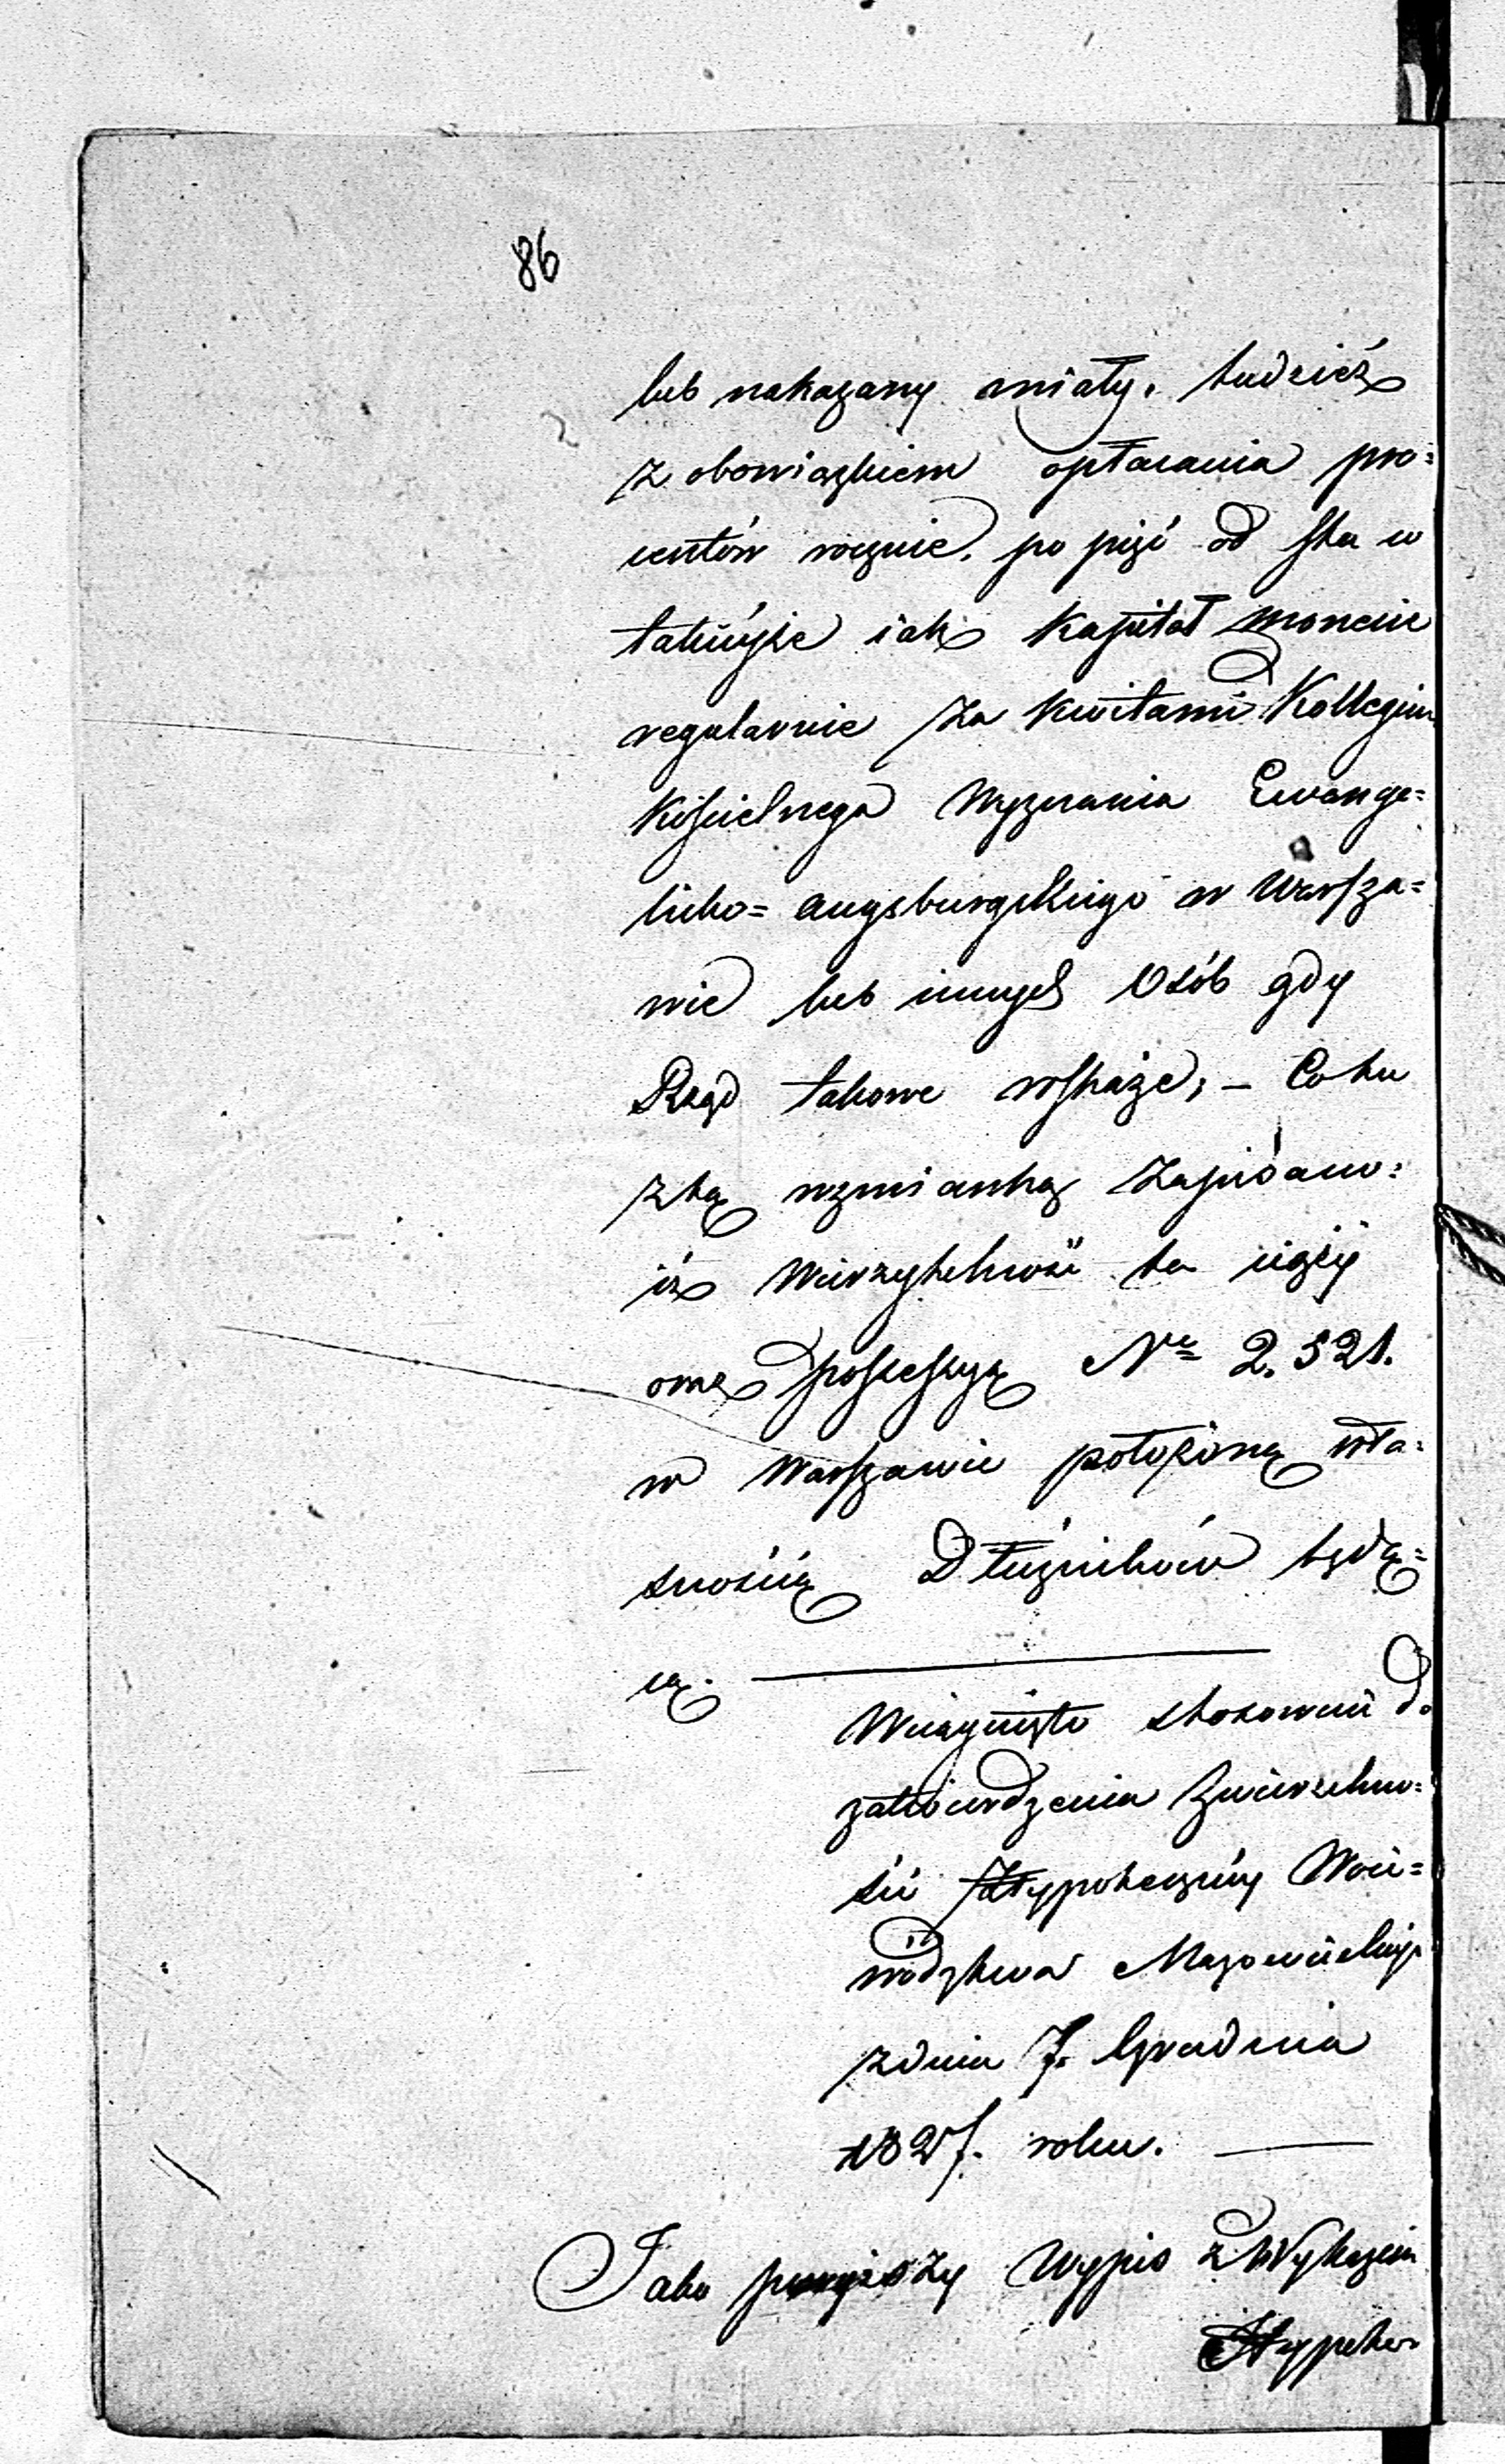 86
lub nakazany miały. tudzież
z obowiązkiem opłacania pro=
centów rocznie, po pięć od sta w
takiéyże iak Kapitał monecie
regularnie za kwitami Kollegium
Kościelnego Wyznania Ewange=
licko= Augsburgskiego w Warsza=
wie lub innych Osób gdy
Rząd takowe wskaże, – Co tu
z tą wzmianką zapisano:
iż Wierzytelność ta ciąży
oraz possessyą Nro 2.521.
w Warszawie położoną wła=
snością Dłużników będą=
cą.
Wciągnięto stosownie do
zatwierdzenia Zwierzchno=
ści Hypoteczney Woie=
wództwa Mazowieckiego
z dnia 7. Grudnia
1827. roku.
Jako powyższy Wypis z Wykazem
Hypote=